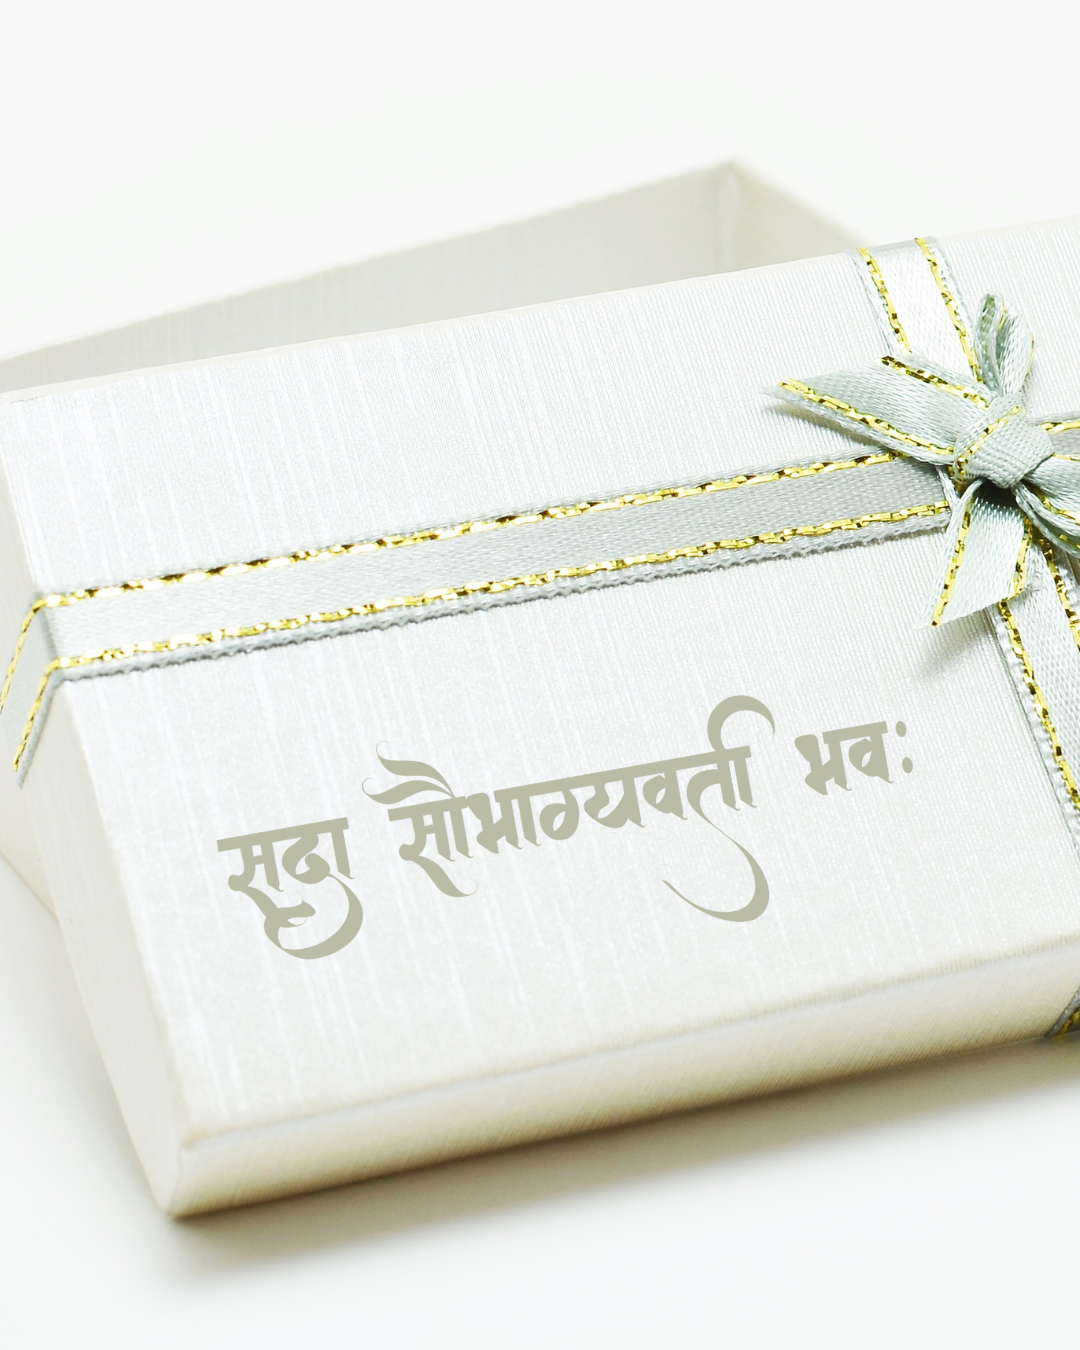 सदा सौभाग्यवती भवः